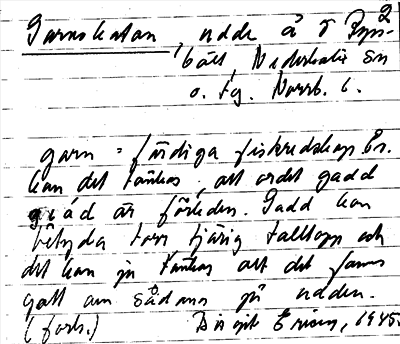 2
Garnskatan, udde å ö Pyn-
bält, Nederkalix sn
o. tg. Norrb. l.
garn = färdiga fiskredskap Ev.
kan det tänkas, att ordet gadd
är förleden. Gadd kan
betyda torr tjärig talltopp och
det kan ju tänkas att det fanns
gott om sådana på udden.
(forts.) Birgit Ericson, 1945.